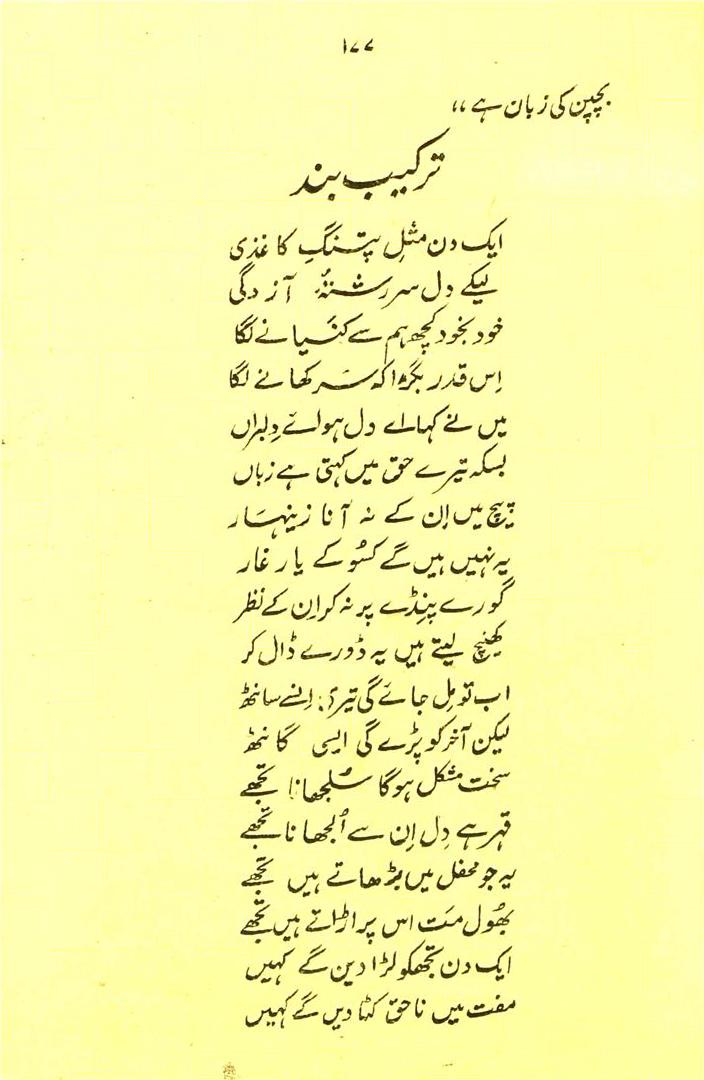 ۱۷۷
بچپن کی زبان ہے ،،
ترکیب بند
ایک دن مثلِ پتنگِ کاغذی
لیکے دل سر رشتۂ آزدگی
خود بخود کچھ ہم سے کنیانے لگا
اِس قدر بگڑا کہ سَر کھانے لگا
میں نے کہا اے دل ہوائے دِلبراں
بسکہ تیرے حق میں کہتی ہے زباں
پیچ میں اِن کے نہ آنا زینہار
یہ نہیں ہیں گے کسُو کے یارِ غار
گورے پِنڈے پر نہ کر اِن کے نظر
کھینچ لیتے ہیں یہ ڈورے ڈال کر
اب تو مِل جائے گی تیری اِنسے سانٹھ
لیکن آخر کو پڑے گی ایسی گانٹھ
سخت مشکل ہوگا سُلجھانا تجھے
قہر ہے دِل اِن سے اُلجھانا تجھے
یہ جو محفل میں بڑھاتے ہیں تجھے
بھُول مَت اس پر اڑاتے ہیں تجھے
ایک دن تجھکو لڑا دین گے کہیں
مفت میں ناحق کٹا دیں گے کہیں